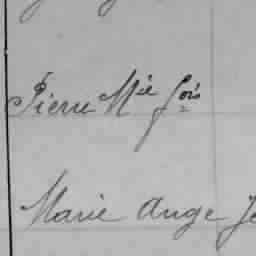 Pierre Mie fois
Marie Ange Je